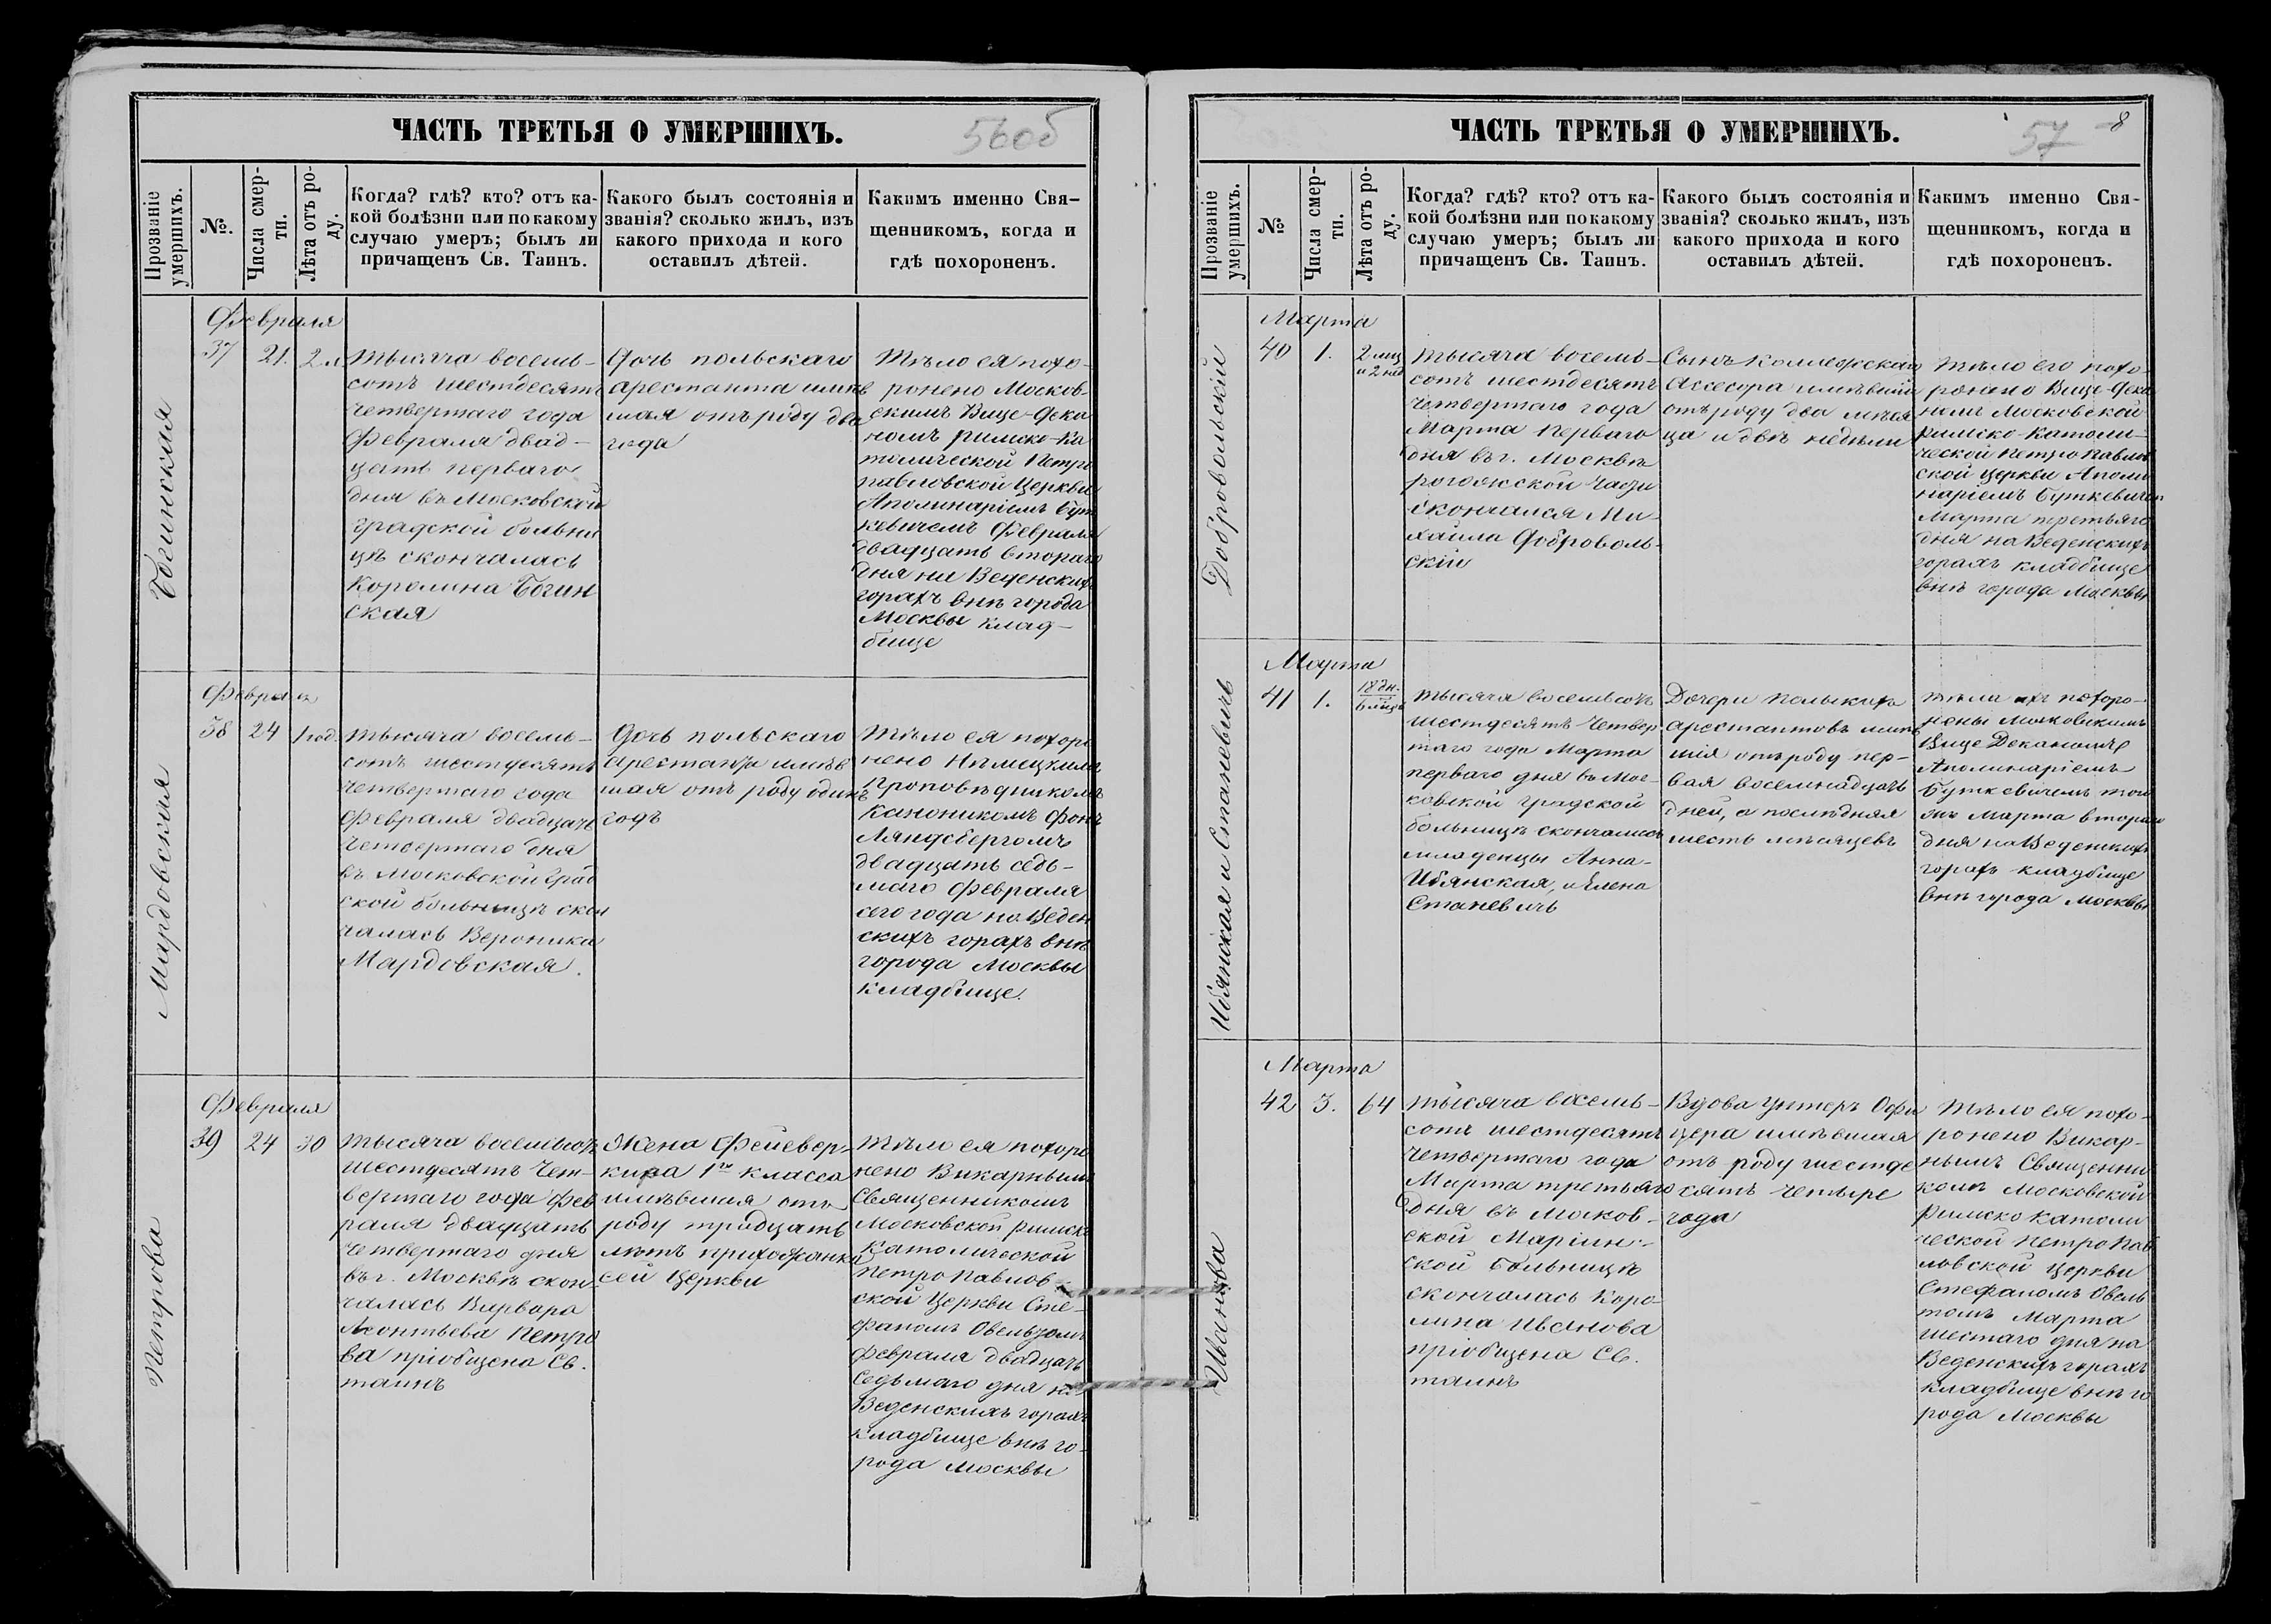 ЧАСТЬ ТРЕТЬЯ О УМЕРШИХЪ.
56об
Прозваніе умершихъ.
№.
Числа смер-
ти.
Лѣта отъ ро-
ду.
Когда? гдѣ? кто? отъ ка-
кой болѣзни или по какому
случаю умеръ; былъ ли
причащенъ Св. Таинъ.
Какого былъ состоянія и
званія? сколько жилъ, изъ
какого прихода и кого
оставилъ дѣтей.
Какимъ именно Свя-
щенникомъ, когда и
гдѣ похороненъ.
Богинская
Февраля
37
21.
2 л
тысяча восемь-
сотъ шестдесятъ
четвертаго года
Февраля двад-
цать перваго
дня въ Московской
градской больни
цѣ скончалась
Королина Богин
ская
Дочь польскаго
арестанта имѣв
шая отъ роду два
года
тѣло ея похо-
ронено Москов-
скимъ Вице-Дека
номъ римско-ка
толической Петро
павловской Церкви
Аполинаріемъ Бут
кевичемъ Февраля
двадцать втораго
дня на Веденскихъ
горахъ внѣ города
Москвы клад-
бище
Мардовская
Февраля
38
24
1 год
тысяча восемь-
сотъ шестдесятъ
четвертаго года
Февраля двадцать
четвертаго дня
въ Московской Град
ской больницѣ скон
чалась Вероника
Мардовская.
Дочь польскаго
арестанта имѣв
шая отъ роду одинъ
годъ
тѣло ея похоро
нено Нѣмецкимъ
проповѣдникомъ
Каноникомъ фонъ
Ляндсбергомъ
двадцать седь-
маго Февраля
сего года на Веден
скихъ горахъ внѣ
города Москвы
кладбище.
Петрова
Февраля
39
24
30
тысяча восемьсотъ
шестдесятъ чет-
вертаго года Фев
раля двадцать
четвертаго дня
въ г. Москвѣ скон-
чалась Варвара
Леонтьева Петро
ва пріобщена Св.
таинъ
Жена Фейевер-
кира 1го класса
имѣвшая отъ
роду тридцать
лѣтъ прихожанка
сей Церкви
тѣло ея похоро
нено Викарнымъ
Священникомъ
Московской римско
Католической
Петро Павлов
ской Церкви Сте-
фаномъ Овельтомъ
Февраля двадцать
седьмаго дня на
Веденскихъ горахъ
кладбище внѣ го-
рода Москвы
ЧАСТЬ ТРЕТЬЯ О УМЕРШИХЪ.
57
8
Прозваніе умершихъ.
№
Числа смер-
ти.
Лѣта отъ ро-
ду.
Когда? гдѣ? кто? отъ ка-
кой болѣзни или по какому
случаю умеръ; былъ ли
причащенъ Св. Таинъ.
Какого былъ состоянія и
званія? сколько жилъ, изъ
какого прихода и кого
оставилъ дѣтей.
Какимъ именно Свя-
щенникомъ, когда и
гдѣ похороненъ.
Добровольскій
Марта
40
1.
2 мц
и 2 нед
тысяча восемь-
сотъ шестдесятъ
четвертаго года
Марта перваго
дня въ г. Москвѣ
рогожской части
скончался Ми-
хаила Доброволь-
скій
Сынъ Коллежскаго
Ассесора имѣвшій
отъ роду два мѣся
ца и двѣ недѣли
тѣло его похо-
ронено Вице-Дека
номъ Московской
римско-католи-
ческой Петро Павлов
ской Церкви Аполи
наріемъ Буткевичемъ
Марта третьяго
дня на Веденскихъ
горахъ кладбище
внѣ города Москвы
Ивянская и Станевичъ
Марта
41
1.
18 дн.
6 мцъ
тысяча восемьсотъ
шестдесятъ четвер
таго года Марта
перваго дня въ Мос-
ковской градской
больницѣ скончались
младенцы Анна-
Ивянская, и Елена
Станевичъ
Дочери польскихъ
арестантовъ имѣв
шія отъ роду пер-
вая восемнадцать
дней, а послѣдняя
шесть мѣсяцевъ
тѣла ихъ похоро-
нены Московскимъ
Вице Деканомъ
Аполинаріемъ
Буткевичемъ того
жъ Марта втораго
дня на Веденскихъ
горахъ кладбище
внѣ города Москвы
Иванова
Марта
42
3.
64
тысяча восемь-
сотъ шестдесятъ
четвертаго года
Марта третьяго
дня въ Москов-
ской Маріин-
ской больницѣ
скончалась Каро-
лина Иванова
пріобщена Св.
таинъ
Вдова унтеръ Офи
цера имѣвшая
отъ роду шестде
сятъ четыре
года
тѣло ея похо-
ронено Викар-
нымъ Священни
комъ Московской
Римско Католи
ческой Петро Пав
ловской Церкви
Стефаномъ Овель
томъ Марта
шестаго дня на
Веденскихъ горахъ
кладбище внѣ го
рода Москвы